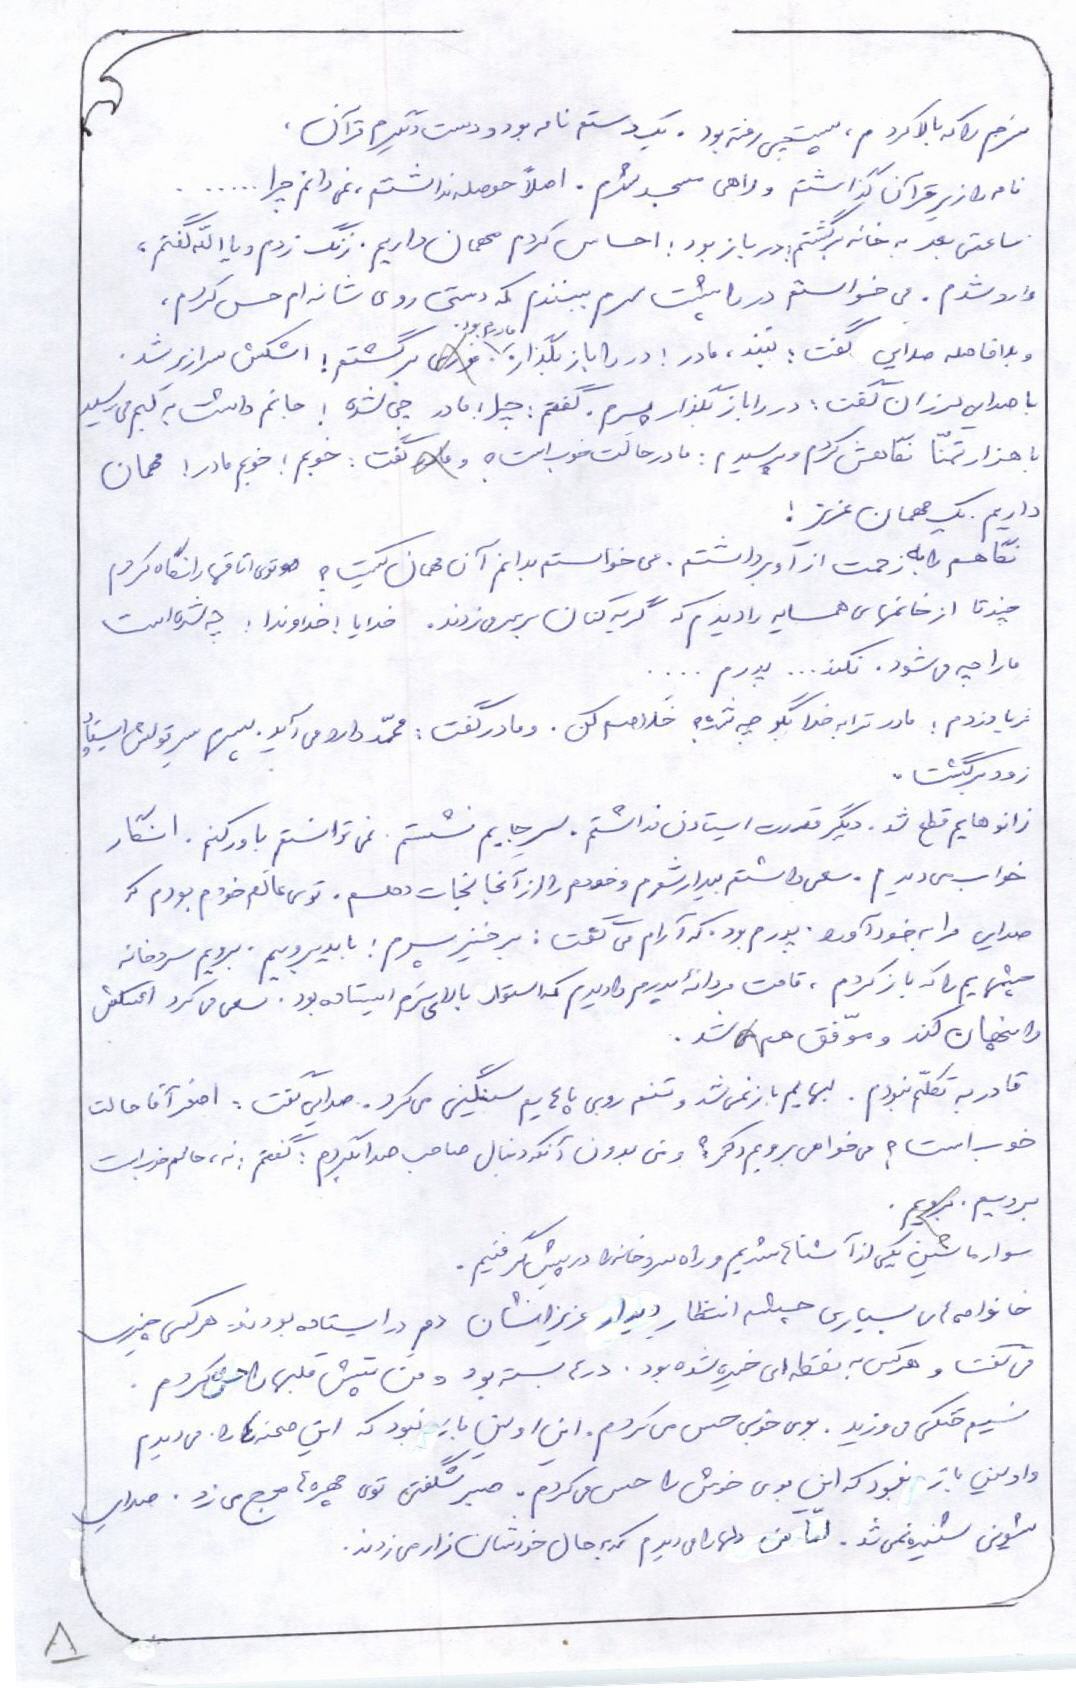 سرم را که بالا کردم، پستچی رفته بود. یک دسته نامه بود و دست دیگرم قرآن،
نامه را زیر قرآن گذاشتم و راهی مسجد شدم. اصلاً حوصله نداشتم، نمی‌دانم چرا......
ساعتی بعد به خانه برگشتم؛ در باز بود؛ احساس کردم مهمان داریم. زنگ زدم و یا الله گفتم،
وارد شدم. می خواستم در را پشت سرم ببندم که دستی روی شانه ام حس کردم،
و بلافاصله صدایی گفت: نبند، مادر! در را باز بگذار. مادرم بود. برگشتم! اشکش سرازیر شد.
با صدایی لرزان گفت: در را باز بگذار پسرم. گفتم: چرا، مادر چی شده؟ جانم داشت به لبم می رسید
با هزار تمنّا نگاهش کردم و پرسیدم: مادر حالت خوب است؟ و گفت: خوبم! خوبم مادر! مهمان
داریم. یک مهمان عزیز!
نگاهم را به زحمت از او برداشتم. می خواستم بدانم آن مهمان کیست؟ توی اتاقها را نگاه کردم
چند تا از خانمهای همسایه را دیدم که گریه کنان بر سر می زدند. خدایا! خداوندا! چه شده است
ما را چه می شود. نکند... پدرم....
فریاد زدم: مادر ترا به خدا بگو چه شده؟ خلاصم کن. و مادر گفت: محمّد دارد می آید. پسرم سر قولش ایستاد
زود برگشت.
زانوهایم قطع شد. دیگر قدرت ایستادن نداشتم. سر جایم نشستم. نمی توانستم باور کنم. انگار
خواب می دیدم. سعی داشتم بیدار شوم و خودم را از آنجا نجات دهم. توی عالم خودم بودم که
صدایی مرا به خود آورد. پدرم بود. که آرام می گفت: برخیز پسرم! باید برویم. برویم سردخانه
چشمهایم را که باز کردم، قامت مردانهٔ پدرم را دیدم که استوار بالای سرم ایستاده بود. سعی می کرد اشکش
را پنهان کند و موّفق هم شد.
قادر به تکلّم نبودم. لبهایم باز نمی شد و تنم روی پاهایم سنگینی می کرد. صدایی گفت: اصغر آقا حالت
خوب است؟ می خواهی برویم دکتر؟ و من بدون آنکه دنبال صاحب صدا بگردم؛ گفتم: نه، حالم خوب است
برویم.
سوار ماشین یکی از آشناها شدیم و راه سردخانه را در پیش گرفتیم.
خانواده های بسیاری چشم انتظار دیدار عزیزانشان دم در ایستاده بودند. هر کس چیزی
می گفت و هر کس به نقطه ای خیره شده بود. درها بسته بود و من تپش قلبها را حس کردم.
نسیم خنکی می وزید. بوی خوبی حس می کردم. این اولین بارم نبود که این صحنه ها را می دیدم
و اولین بارم نبود که این بوی خوش را حس می کردم. صبر شگفتی توی چهره ها موج می زد. صدای
شیونی شنیده نمی شد. امّا من دلها را می دیدم که به حال خودشان زار می زدند.
۸